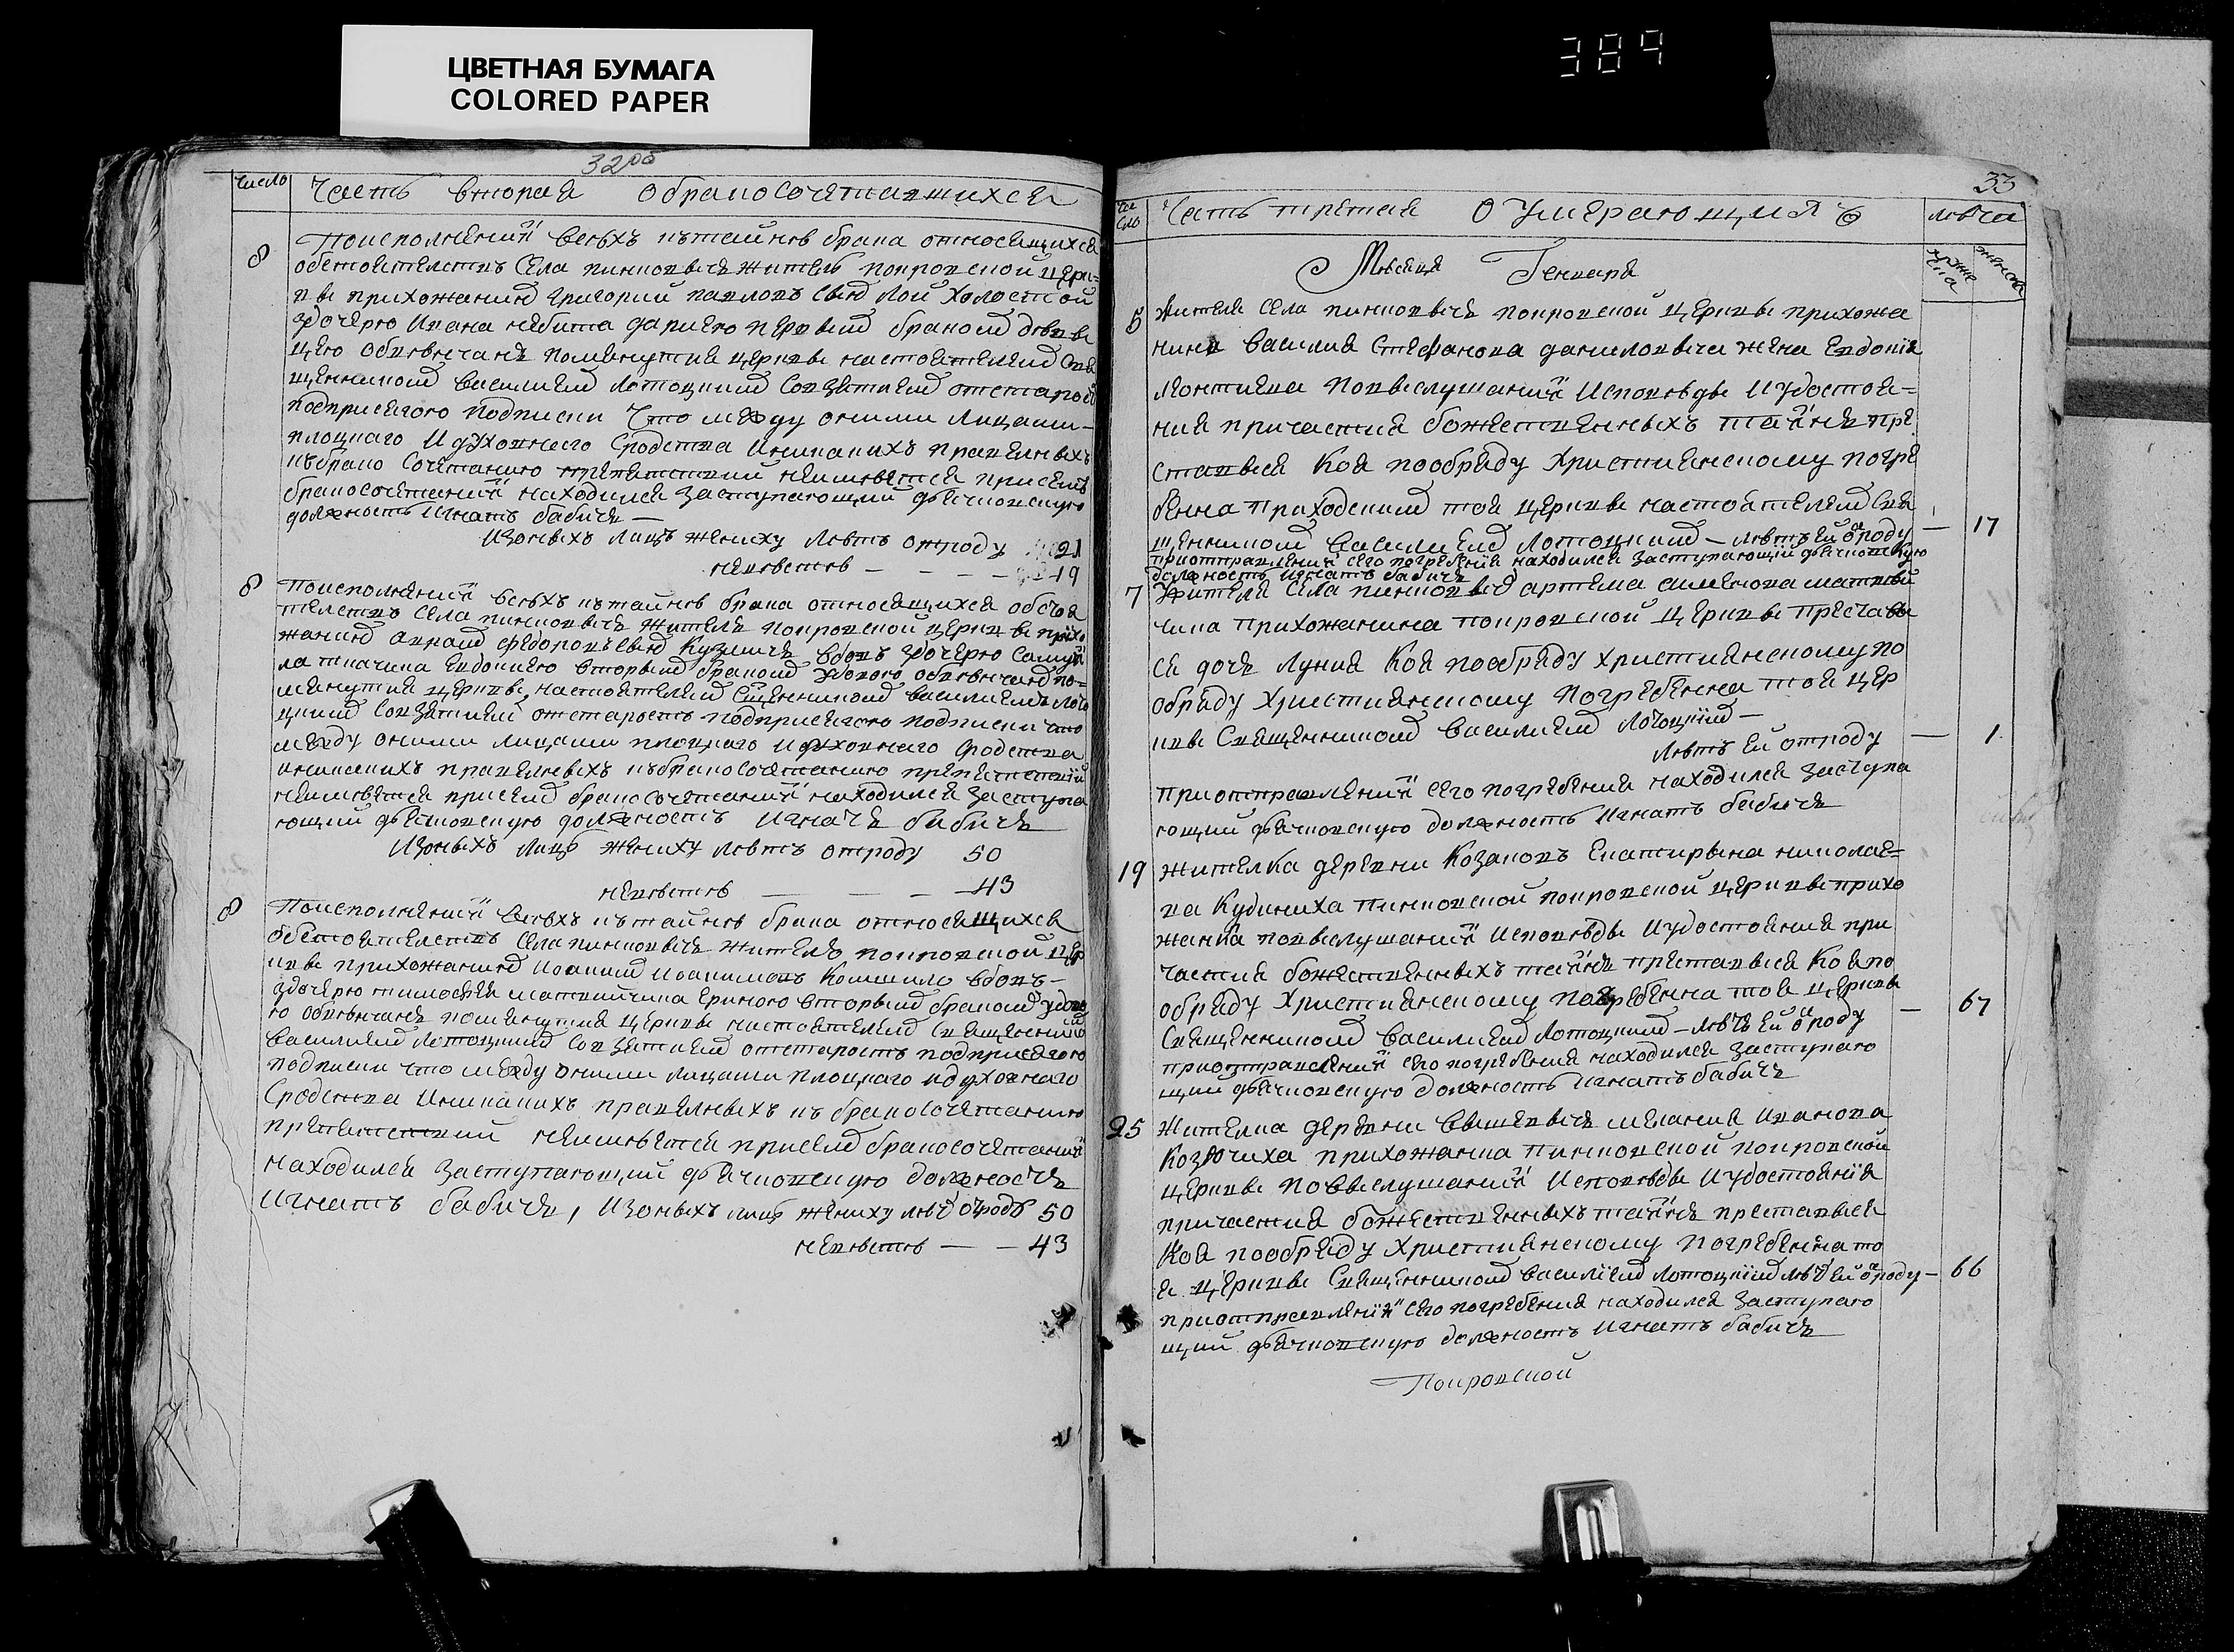 ЦВЕТНАЯ БУМАГА
COLORED PAPER
389
32об
Число
Часть вторая о бракосочетавшихся
8
Поисполнений всѣхъ къ тайнѣ брака относящихся
обстоятелствъ Села пинковичъ житель покровской церк=
кви прихожанинъ Григорий павловъ сынъ Лой холостой
здочерю Ивана никита дариею первымъ бракомъ дѣви
цею обвѣнчанъ помянутия церкви настоятелемъ Свя
щенникомъ Василиемъ Лотоцкимъ Совзятиемъ отстарост
подприсягою подписки Что между оними Лицами
плоцкаго И духовнаго Сродства Иникакихъ правелныхъ
къбрако Сочетанию препятствий неимѣется присемъ
бракосочетаний находился Заступающий дьячковскую
должность Игнатъ бабичъ —
Изоныхъ лицъ жениху лѣтъ отроду 21
невѣстѣ — — — 19
8
Поисполнений всѣхъ къ тайнѣ брака относящихся обстоя
телствъ Села пинковичъ житель покровской церкви прихо
жанинъ авраам федоровъ сынъ Кузмичъ вдовъ здочерю Самуй
ла ткачика Евдокиею вторымъ бракомъ здовою обвѣнчанъ по=
мянутия церкви настоятелемъ Священникомъ Василиемъ Лото
цкимъ Совзятиемъ отстаростъ подприсягою подписки что
между оними лицами плоцкаго идуховнаго Сродства
Иникакихъ правелныхъ къбракосочетанию препятствий
неимѣется присемъ бракосочетаний находился Заступа
ющий дьячковскую должность Игнатъ бабичъ
Изоныхъ лицъ жениху лѣтъ отроду 50
невѣстѣ — — — 43
8
Поисполнений всѣхъ къ тайнѣ брака относящихся
обстоятелствъ Села пинковичъ житель покровской цер
кви прихожанинъ Иоакимъ Иоакимовъ Кошило вдовъ—
здочерю тимофея маткийчика Ериною вторымъ бракомъ здово
ю обвѣнчанъ помянутия церкви настоятелемъ Священникомъ
Василиемъ Лотоцкимъ Совзятиемъ отстаростъ подприсягою
подписки что между оними лицами плоцкаго идуховнаго
Сродства Иникакихъ правелныхъ къ бракосочетанию
препятствий неимѣется присемъ бракосочетаний
находился Заступающий дьячковскую должность
Игнатъ бабичъ, Изоныхъ лицъ жениху лѣтъ отроду 50
невѣстѣ — — 43
33
Чис
сло
Часть третая О Умерающихъ
лѣта
муже
ска
женска
Мѣсяца Генваря
5
Жителя Села пинковичъ покровской церкви прихожа
нина Василия Стефанова даниловича жена Евдокия
леонтиева повыслушаний Исповѣды Иудостое=
ния причастия божественныхъ тайнъ пре
ставися Коя пообряду Християнскому погре
бенна Приходскимъ тоя церкви настоятелемъ Свя
щенникомъ Василиемъ Лотоцкимъ — лѣтъ Ей отроду — 17
приотправлений Сего погребения находился Заступающий дьячковскую
должность Игнатъ бабичъ
7
Жителя Села пинковичъ артема Симеонова маткий
чика прихожанина покровской церкви преставы
ся дочь Лукия Коя пообряду християнскому по
обряду Християнскому погребенна тоя цер
кви Священникомъ Василиемъ Лотоцкимъ —
Лѣтъ Ей отроду — 1
приотправлений Сего погребения находился заступа
ющий дьячковскую должность Игнатъ бабичъ
19
жителка деревни Козаковъ Екатирына николае=
ва Кудиниха пинковской покровской церкви прихо
жанка повыслушаний Исповѣды Иудостояния при
частия божественныхъ тайнъ преставися Коя по
обряду Християнскому погребенна тоя церкви
Священникомъ Василиемъ Лотоцкимъ — лѣтъ Ей отроду — 67
приотправлений Сего погребения находился Заступаю
щий дьячковскую должность Игнатъ бабичъ
25
Жителка деревни Вышевичъ мелания Иванова
Козючиха прихожанка пинковской покровской
церкви повыслушаний Исповѣды Иудостояния
причастия божественныхъ тайнъ преставися
Коя пообряду Християнскому погребенна то
я церкви Священникомъ Василиемъ Лотоцкимъ лѣтъ Ей отроду — 66
приотправлений Сего погребения находился Заступаю
щий дьячковскую должность Игнатъ бабичъ
Покровской